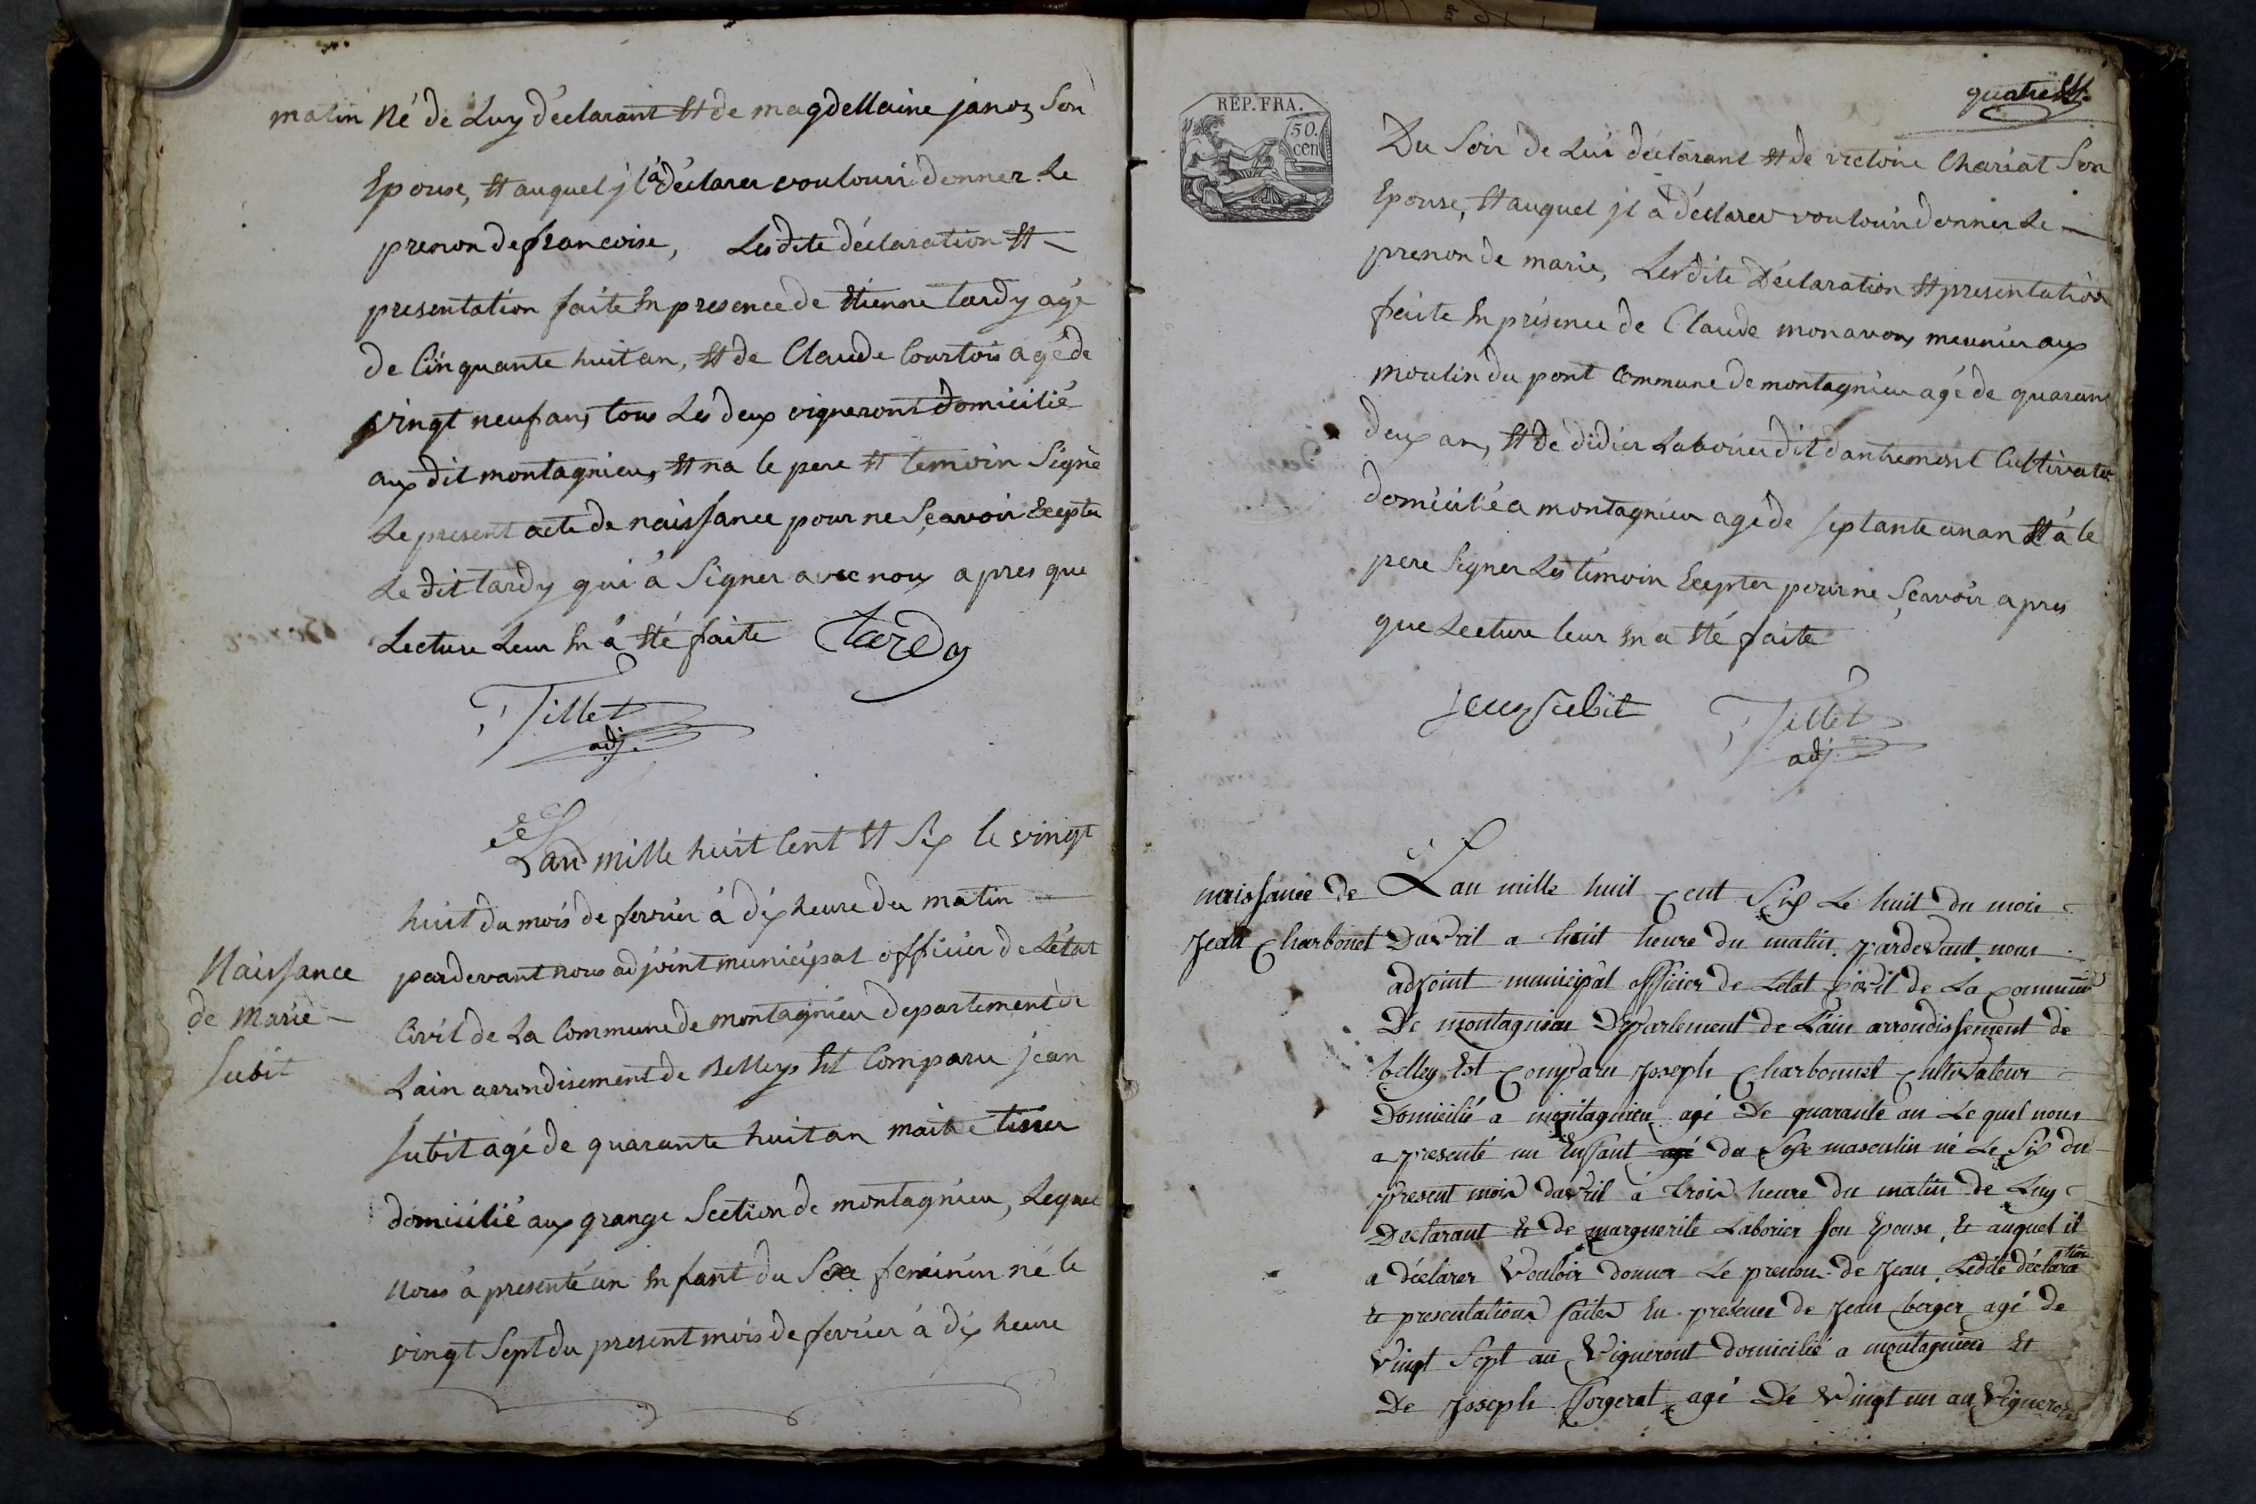 matin né de Luy déclarant Et de magdellaine janoz Son
Epouse, Et auquel jl à déclarer voulouir donner Le
prenon de francoise, Lesdite déclaration Et
presentation faite En presence de Etienne tardy agé
de Cinquante huit an, Et de Claude Courtois agé de
vingt neuf ans tous Les deux vigneront domicilié
aux dit montagnieu, Et na le pere Et temoin Signé
Le present acte de naissance pour ne Sçavoir Excepter
Le dit tardy qui à Signer avec nous apres que
Lecture Leur En à Eté faite tardy
Tillet
adj.
Lan mille huit Cent Et Six le vingt
huit du mois de fevrier à dix heure du matin
pardevant nous adjoint municipal officier de Létat
Civil de La Commune de montagnieu departement de
Lain arrondisement de Belley Est Comparu jean
Subit agé de quarante huit an maitre tissier
domicilié aux grange Section de montagnieu, Lequel
nous à presenté un Enfant du Sexe feminin né le
vingt Sept du present mois de fevrier à dix heure
Naissance
de Marie
Subit
quatre
REP. FRA.
50.
cen
Du Soir de Lui déclarant Et de victoire Chariat Son
Epouse, Et auquel jl à déclarer voulouir donner Le
prenon de marie, Lesdite Déclaration Et presentation
faite En présence de Claude monavon meunier aux
moulin du pont Commune de montagnieu agé de quarante
deux an, Et de didier Laborier dit dantremont Cultivateur
domicilié a montagnieu agé de septante un an Et à le
pere Signer Les témoin Excepter pour ne Sçavoir apres
que Lecture leur En a Eté faite
jean subit Tillet
adj.
naissance de
Jean Charbonet
Lan mille huit Cent Six Le huit du mois
Davril a huit heure du matin pardevant nous
adjoint municipal officier de Létat Civil de La Commune
De montagnieu Departement de Lain arrondissement de
belley Est Comparu Joseph Charbonnet Cultivateur
Domicilié a montagnieu agé De quarante an Le quel nous
a presenté un Enfant agé du Sexe masculin né Le Six du
present mois davril à trois heure du matin de Luy
Declarant Et de marguerite Laborier son Epouse, Et auquel il
a déclarer Vouloir donner Le prenon de Jean, Ledite déclaration
Et presentations faites En presence de Jean berger agé de
Vingt Sept an Vigneront domicilié a montagnieu Et
De Joseph Forgeret agé De Vingt un an Vigneron